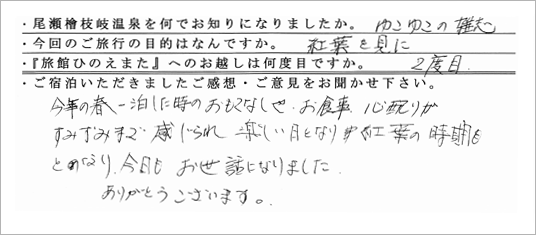 ・尾瀬檜枝岐温泉を何でお知りになりましたか。 ゆこゆこの雑誌
・今回のご旅行の目的はなんですか。 紅葉を見に
・『旅館ひのえまた』へのお越しは何度目ですか。 2度目
・ご宿泊いただきましたご感想・ご意見をお聞かせ下さい。
今年の春一泊した時のおもてなしや お食事 心配りが
すみずみまで感じられ 楽しい日となり 紅葉の時期も
とのなり、今日も お世話になりました。
ありがとうございます。